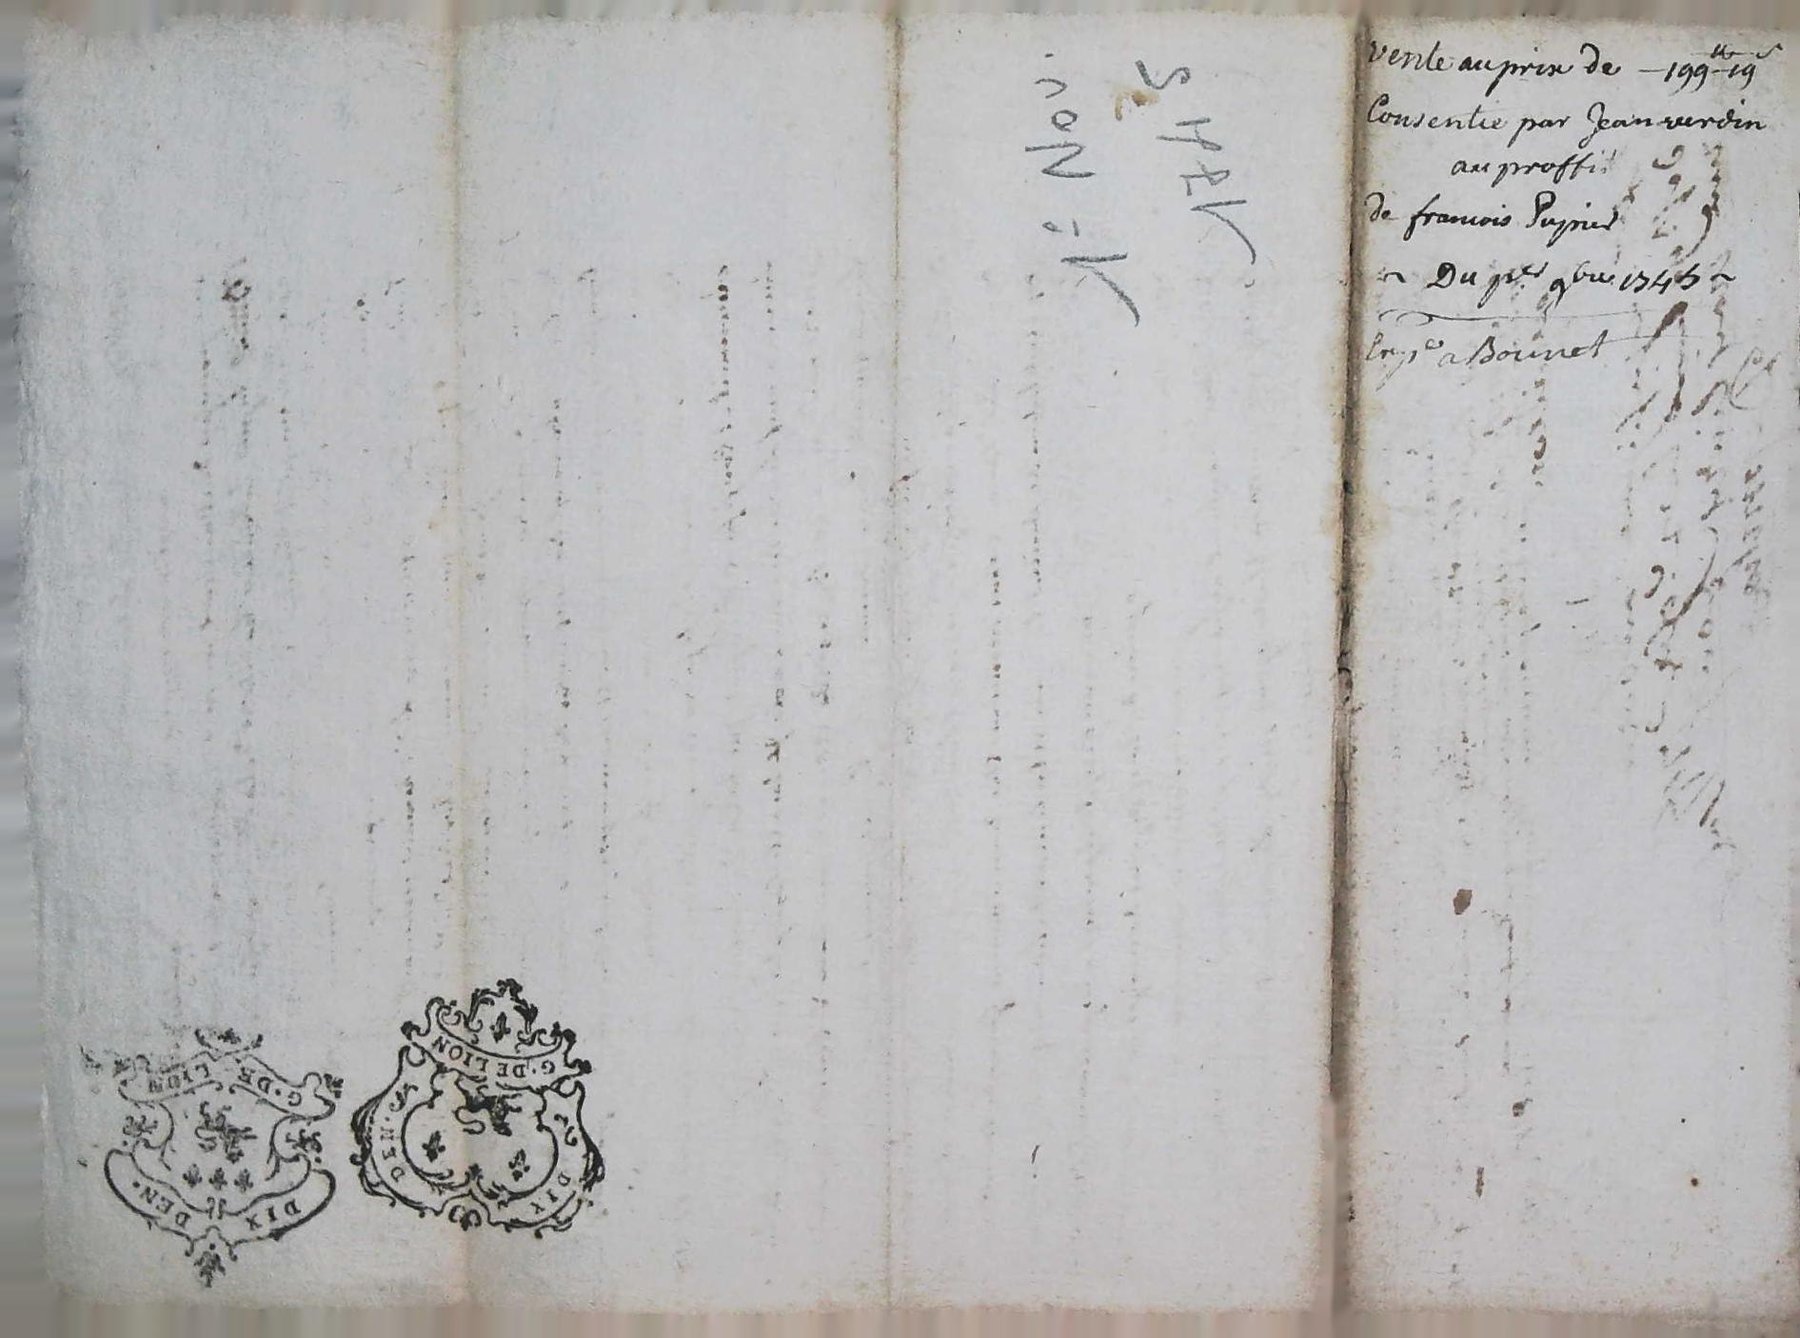 Vente au prix de — 199 ᵗᵗ 19 ˢ
Consentie par Jean verdin
au proffit
de francois Pupier
Du pᵉʳ 9bre 1745
a Bonnet
1° Nov.
1745
G. DE LION
DIX DEN.
G. DE LION
DIX DEN.